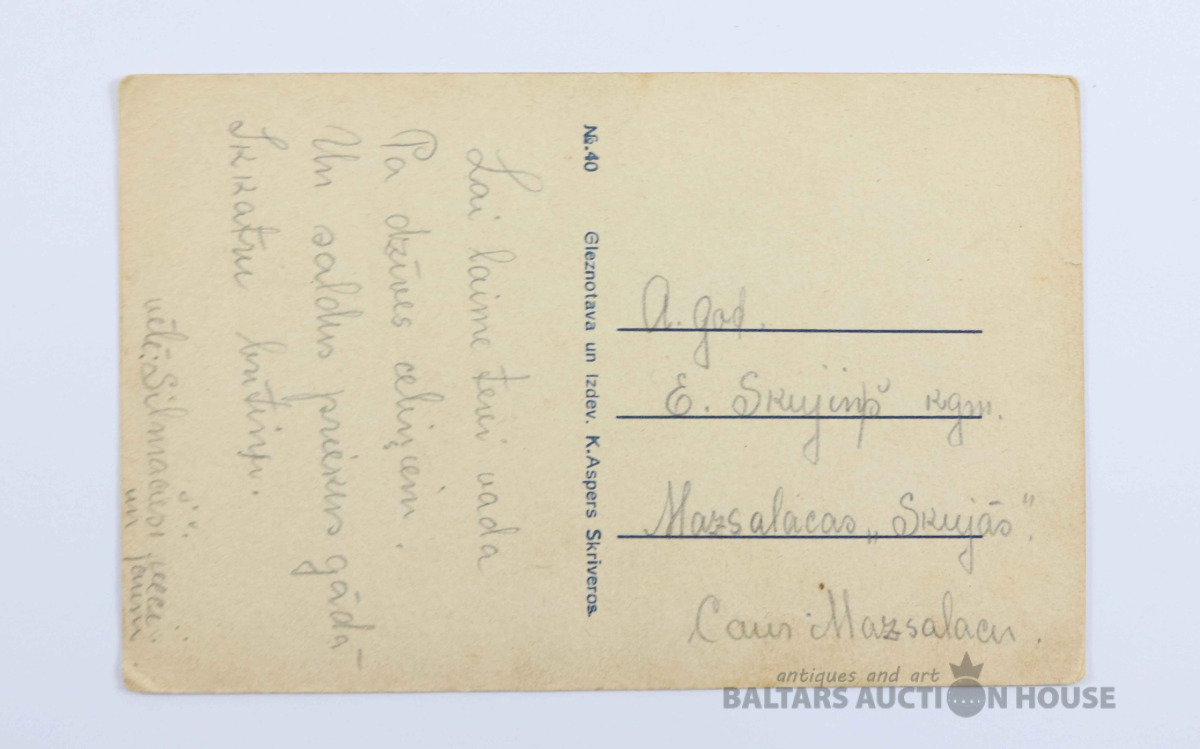 Lai laime tevi vada
Pa dzīves celiņiem.
Un saldus priekus gādā
Ikkatru brītiņi.
vēlē: Silmačisi veci
un jauni
№.40 Gleznotava un Izdev. K.Aspers Skriveros.
A. god.
E. Skujiņš kgm.
Mazsalacas „Skujās“.
Caur Mazsalacu.
antiques and art
BALTARS AUCTION HOUSE